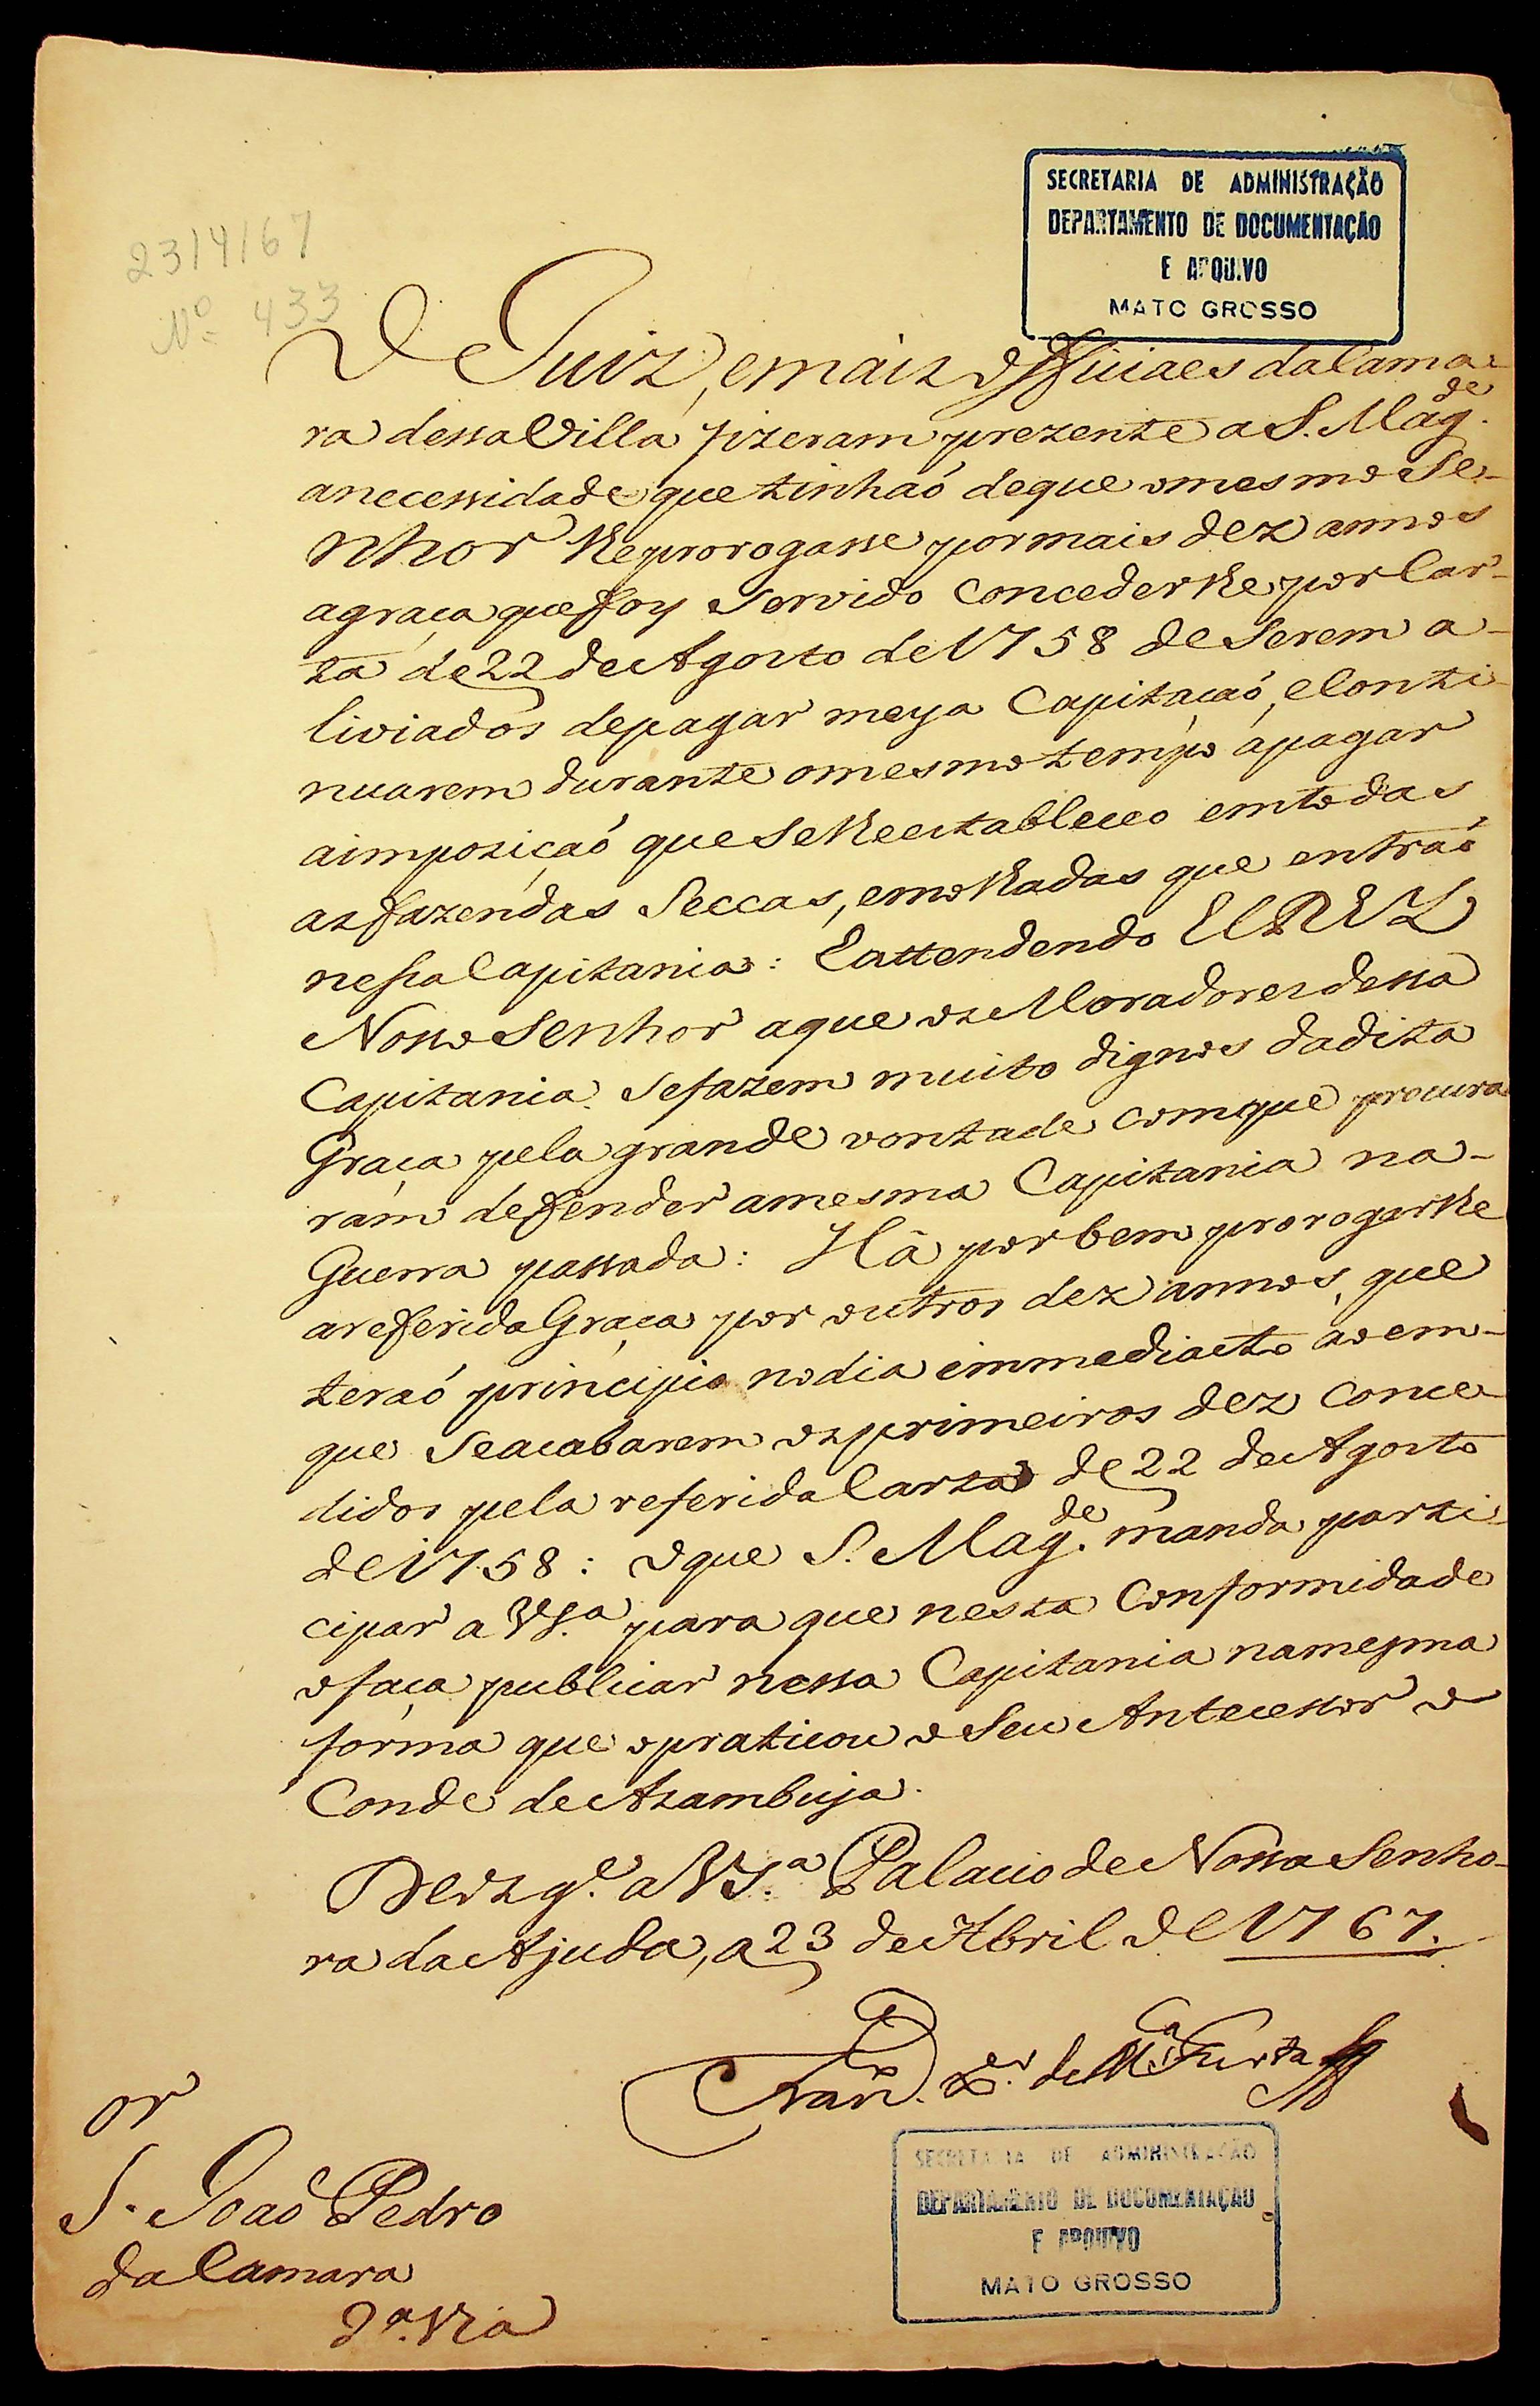 SECRETARIA DE ADMINISTRAÇÃO
DEPARTAMENTO DE DOCUMENTAÇÃO
E ARQUIVO
MATO GROSSO
23/4/67
Nº 433
O Juiz, emais Officiaes daCama-
ra dessaVilla fizeram prezente a S. Mag.de
anecessidade que tinhaõ deque omesmo Se-
nhor lheprorogasse pormais dez annos
agraça que foy Servido Concederlhe por Car-
ta de 22 de Agosto de 1758 de Serem a-
liviados depagar meya Capitaçaõ, eConti-
nuarem durante omesmo tempo apagar
aimpoziçaõ que Selheestableceo emtodas
asfazendas Seccas, emolhadas que entraõ
nessaCapitania: Eattendendo ELREY
Nosso Senhor aque os Moradores dessa
Capitania Sefazem muito dignos dadita
Graça pela grande vontade comque procura-
ram defender amesma Capitania na-
Guerra passada: Há por bem prorogarlhe
areferida Graça por outros dez annos, que
teraõ principio nodia immediacto aoem-
que Seacabarem osprimeiros dez Conce-
didos pela referida Carta de 22 de Agosto
de 1758: Oque S. Mag.de manda parti-
cipar a V S.a para que nesta Conformidade
ofaça publicar nessa Capitania namesma
forma que opraticou oSeu Antecessor o
Conde de Azambuja.
Deos g.e a V S.a Palacio de Nossa Senho-
ra da Ajuda, a 23 de Abril de 1767.
Fran.co X.er de M.ça Furtado
S.or Joaõ Pedro
da Camara
2ª. Via
SECRETARIA DE ADMINISTRAÇÃO
DEPARTAMENTO DE DOCUMENTAÇÃO
E ARQUIVO
MATO GROSSO